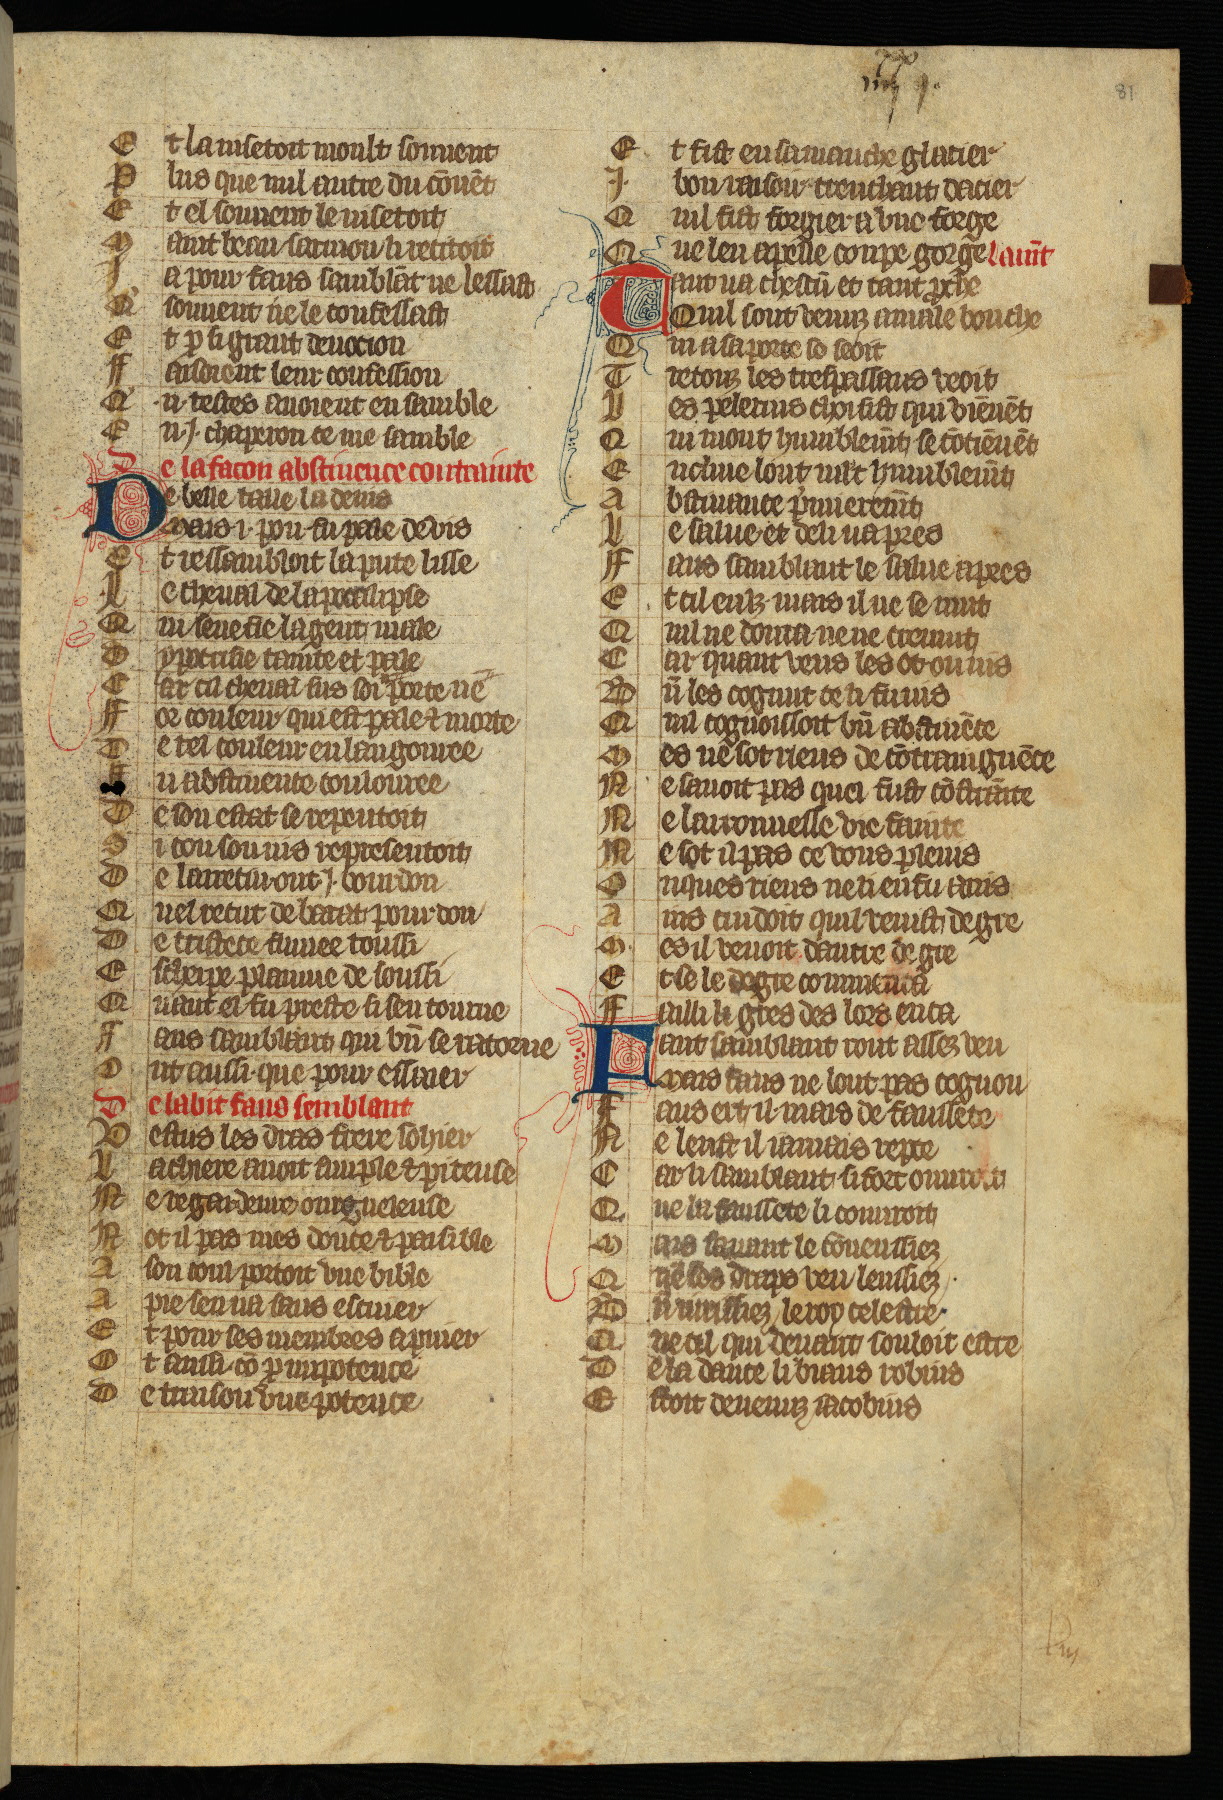 iiij xx j.
81
Et la visetoit moult souuent
Plus que nul autre du couuēt
Et el souuent le visetoit
Maint beau sarmon li recitoit
Ja pour faus samblāt ne lessast
Q̄ souuent ne le confessast
Et p si grant deuocion
Faisoient leur confession
Q̄ .ij. testes auoient en samble
En .j. chaperon ce me samble
De la facon abstinence contrainte
De belle taille la deuis
Mais .i. pou fu pale de vis
Et ressambloit la pute lisse
Le cheual de lapocalipse
Qui senefie la gent male
Dypocrisie tainte et pale
Car cil cheual sus soi porte nē
For couleur qui est pale & morte
De tel couleur enlangouree
Fu abstinente coulouree
De son estat se repentoit
Si con son uis representoit
De larrecin out .j. bourdon
Quel recut de barat pour don
De tristece fumee roussi
Escherpe plainne de soussi
Quant el fu preste si sen tourne
Faus samblant qui bn̄ se ratorne
Out aussi que pour essaier
De labit faus semblant
Vestus les dras frere sohier
La chiere auoit simple & piteuse
Ne regardeure orgueleuse
Not il pas mes douce & paisible
A son coul portoit vne bible
Apre sen ua sans escuier
Et pour ses membres apuier
Ot aussi cō p inpotence
De traison vne potence
Et fist en sa manche glacier
.J. bon rasoir trenchant dacier
Quil fist forgier a vne forge
Que len apelle coupe gorge lauīt
Tant ua chescū et tant pche
Quil sont venuz a male bouche
Qui a sa porte se seoit
Tretouz les trespassans veoit
Les pelerins choisist qui viēnēt
Qui mout humblemīt se cōtiēnēt
Encline lont mlt humblemīt
Abstinance pmieremīt
Le salue et de li ua pres
Faus samblant le salue apres
Et cil eulz mais il ne se mut
Quil ne douta ne ne cremut
Car quant veus les ot ou uis
Bn̄ les cognut ce li fu uis
Quil cognoissoit bn̄ abstinēce
Mes ne sot riens de cōtraingnēce
Ne sauoit pas quel fust cōstraīte
Ne larronnesse vie fainte
Ne sot il pas ce vous pleuis
Onques riens ne li en fu auis
Ains cuidoit quil venist de gre
Mes il venoit dautre degre
Et se le degre commenca
Failli li gres des lors en ca
Faut samblant rout assez veu
Mais faus ne lout pas cogneu
Faus ert il mais de faussete
Ne leust il iamais repte
Car li samblant si fort ouuroit
Que la faussete li couuroit
Mais sauant le cōneussiez
Que ses draps veu leussiez
Bn̄ iurissiez le roy celestre
Que cil qui deuant souloit estre
De la dance li biaus robins
Estoit deuenuz iacobins